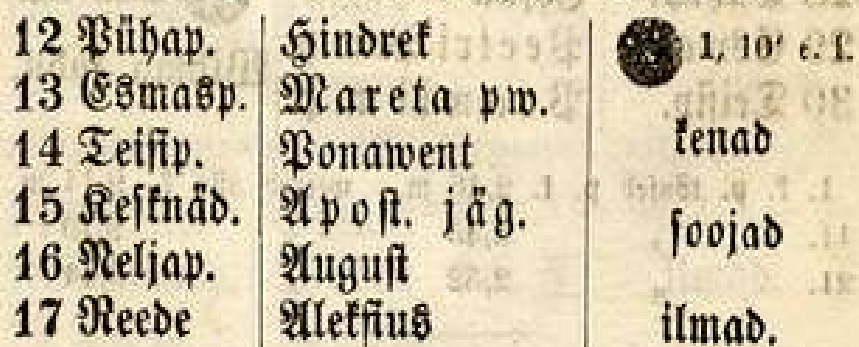 12 Pühap. Hindrek 1, 10' e. l.
13 Esmasp. Mareta pw.
14 Teisip. Ponawent kenad
15 Kesknäd. Apost. jäg. soojad
16 Neljap. August
17 Reede Aleksius ilmad.